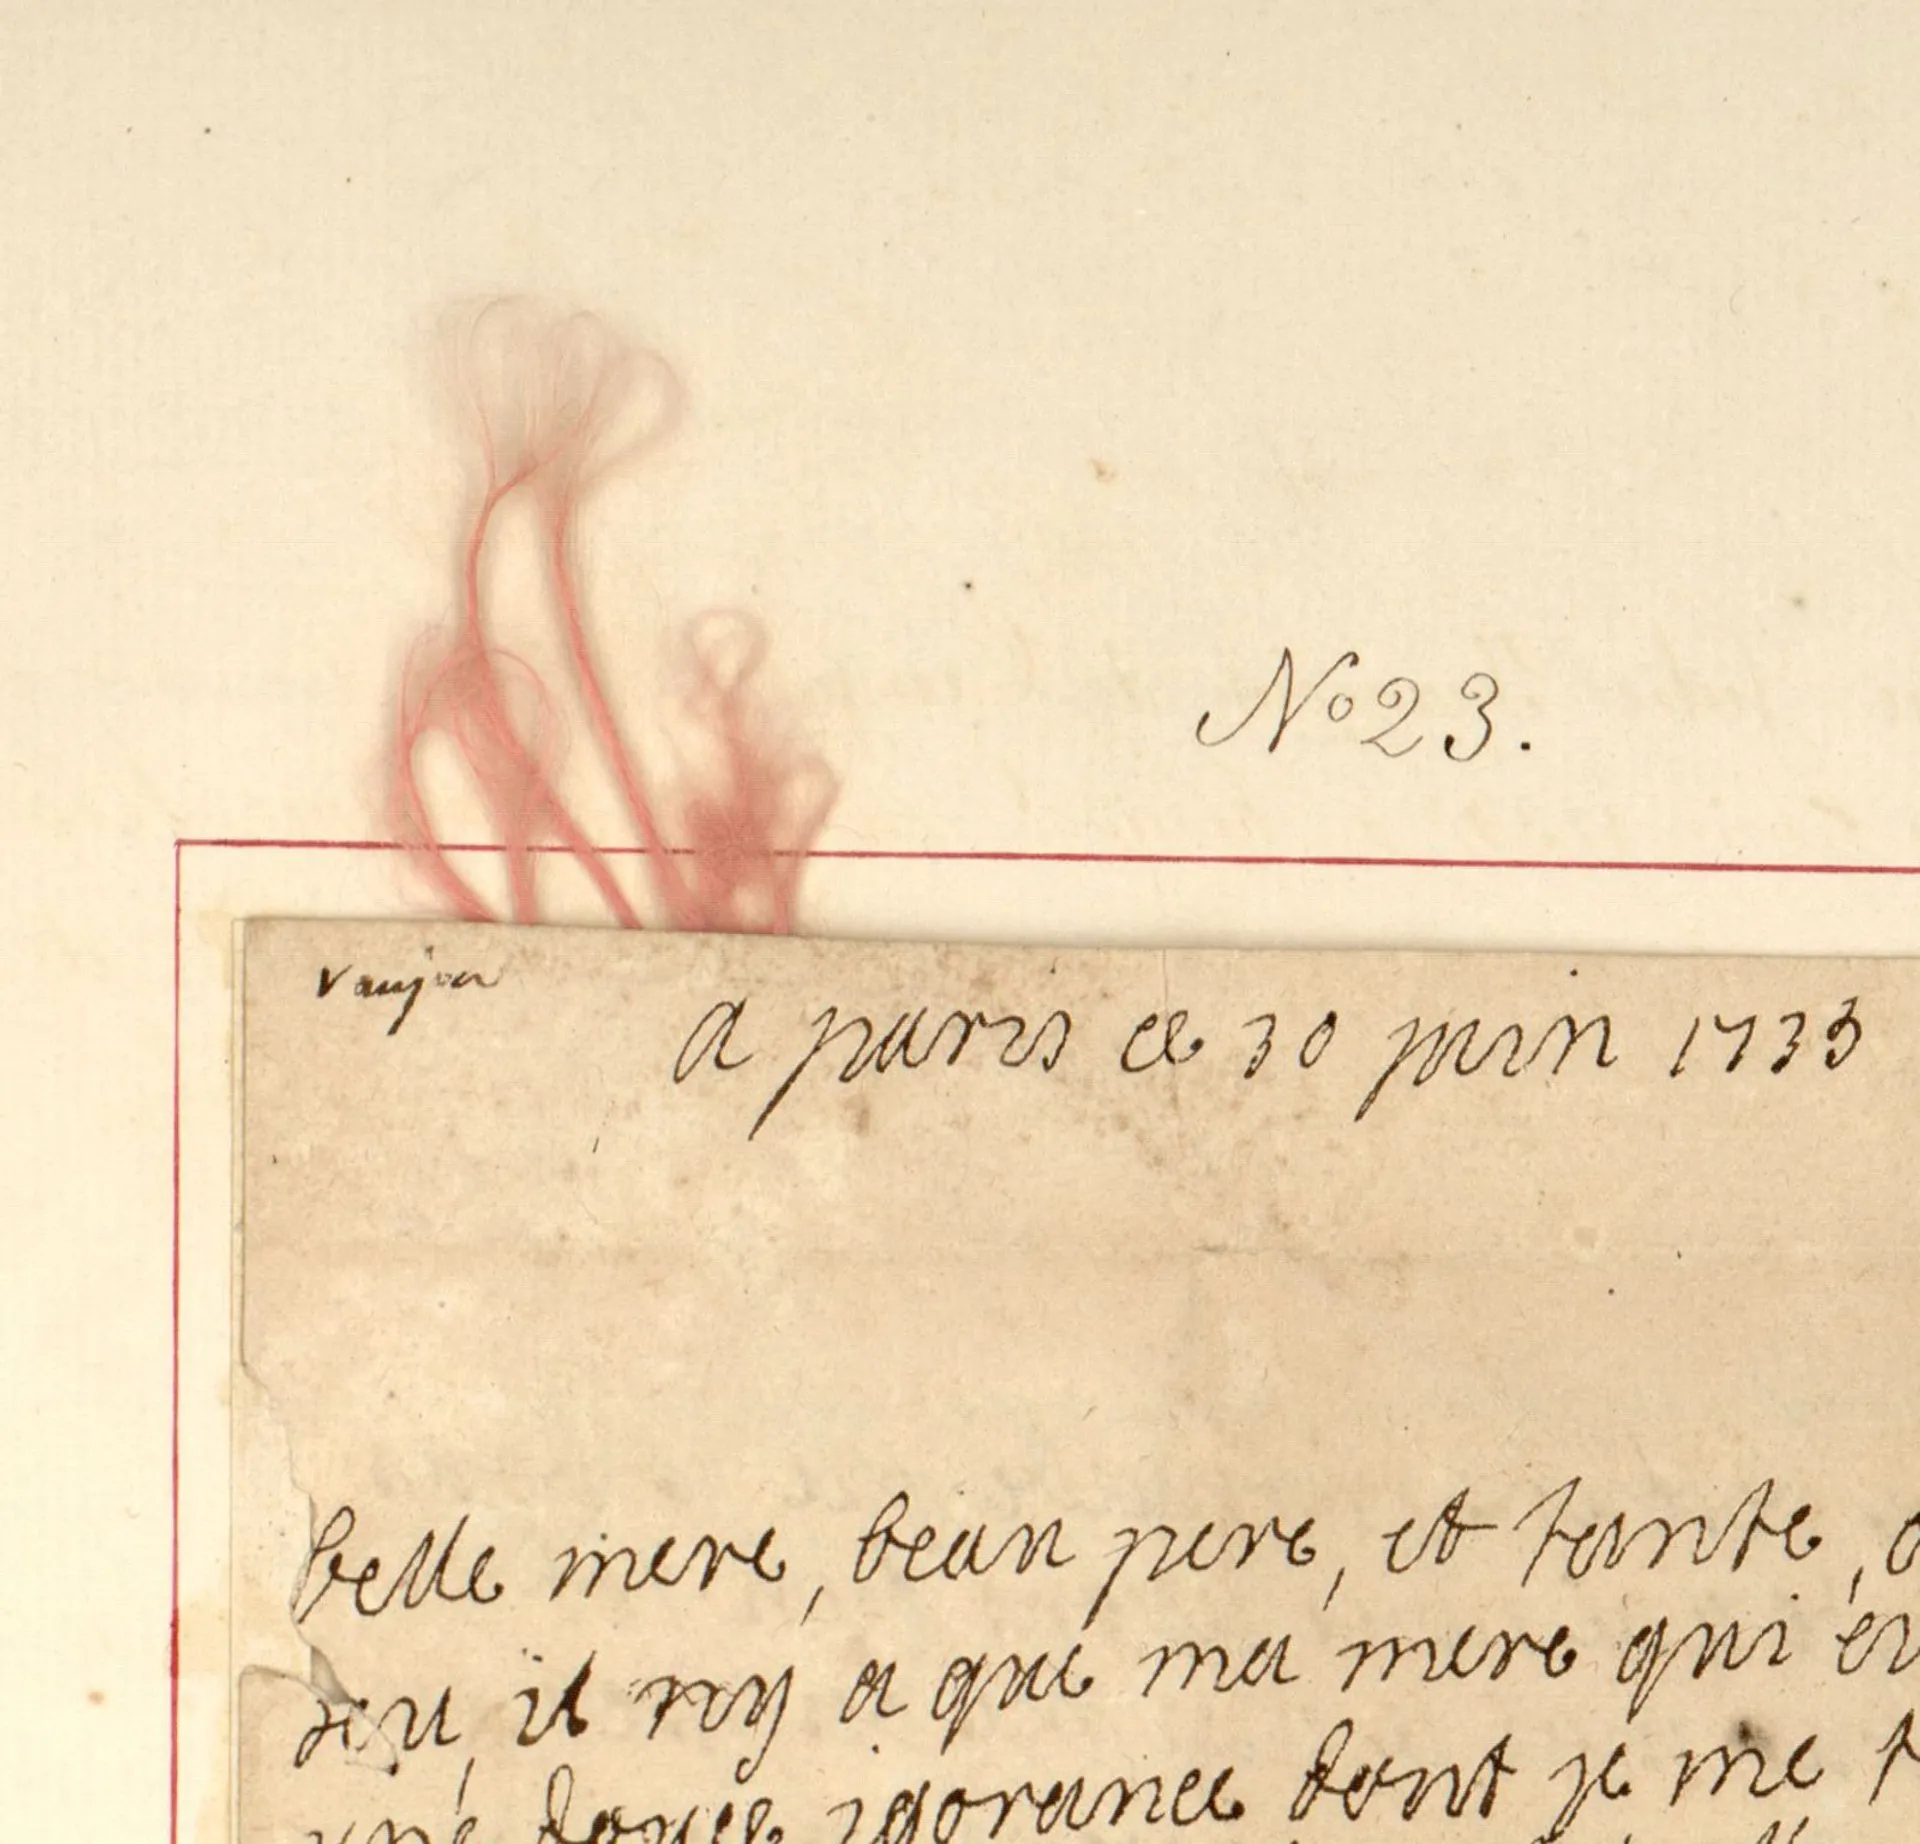 No 23.
Vaujour
a paris ce 30 juin 1733
belle mere, beau pere, et tante,
seu, il ny a que ma mere qui
une douce igorance dont je me